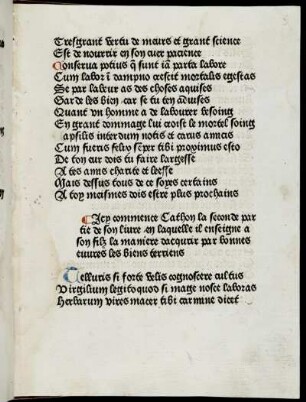 Tresgrant vertu de meurs et grant science
Est de nourrir en son cuer pacience
Conserua potius q̄ sunt iā parta labore
Cum labor ī dampno crescit mortalis egestas
Se par labeur as des choses aquises
Garde les bien car se tu ten aduises
Quant vn homme a de labourer besoing
En grant dommage lui croist le mortel soing
apsilis interdum notis et caris amicis
Cum fueris felix semper tibi proximus esto
De ton eur dois tu faire largesse
A tes amis charite et leesse
Mais dessus tous de ce soyes certains
A toy mesmes dois estre plus prochains
Icy commence Cathon la seconde par
tie de son liure en laquelle il enseigne a
son filz la maniere dacquerir par bonnes
euures les biens terriens
Telluris si forte velis cognoscere cultus
Virgilium legito quod si mage nosce laboras
Herbarum vires macer tibi carmine dicet